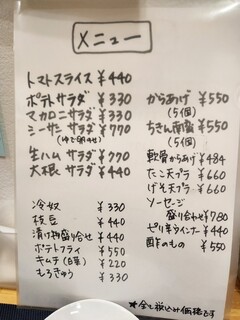 メニュー
トマトスライス ¥440
ポテトサラダ ¥330
マカロニサラダ ¥330
シーサーサラダ ¥770
(ゆで卵のせ)
生ハムサラダ ¥770
大根サラダ ¥440
冷奴 ¥330
枝豆 ¥440
漬け物盛り合せ ¥440
ポテトフライ ¥550
キムチ(白菜) ¥220
もろきゅう ¥330
からあげ ¥550
(5個)
ちきん南蛮 ¥550
(5個)
軟骨からあげ ¥484
たこ天プラ ¥660
げそ天プラ ¥660
ソーセージ
盛り合わせ ¥780
ピリ辛ウインナー ¥440
酢のもの ¥550
★全て税込み価格です